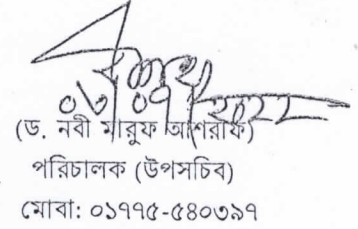 (ড. নবী মারুফ আশরাফ)
পরিচালক (উপসচিব)
মোবা: ০১৭৭৫-৫৪০৩৯৭